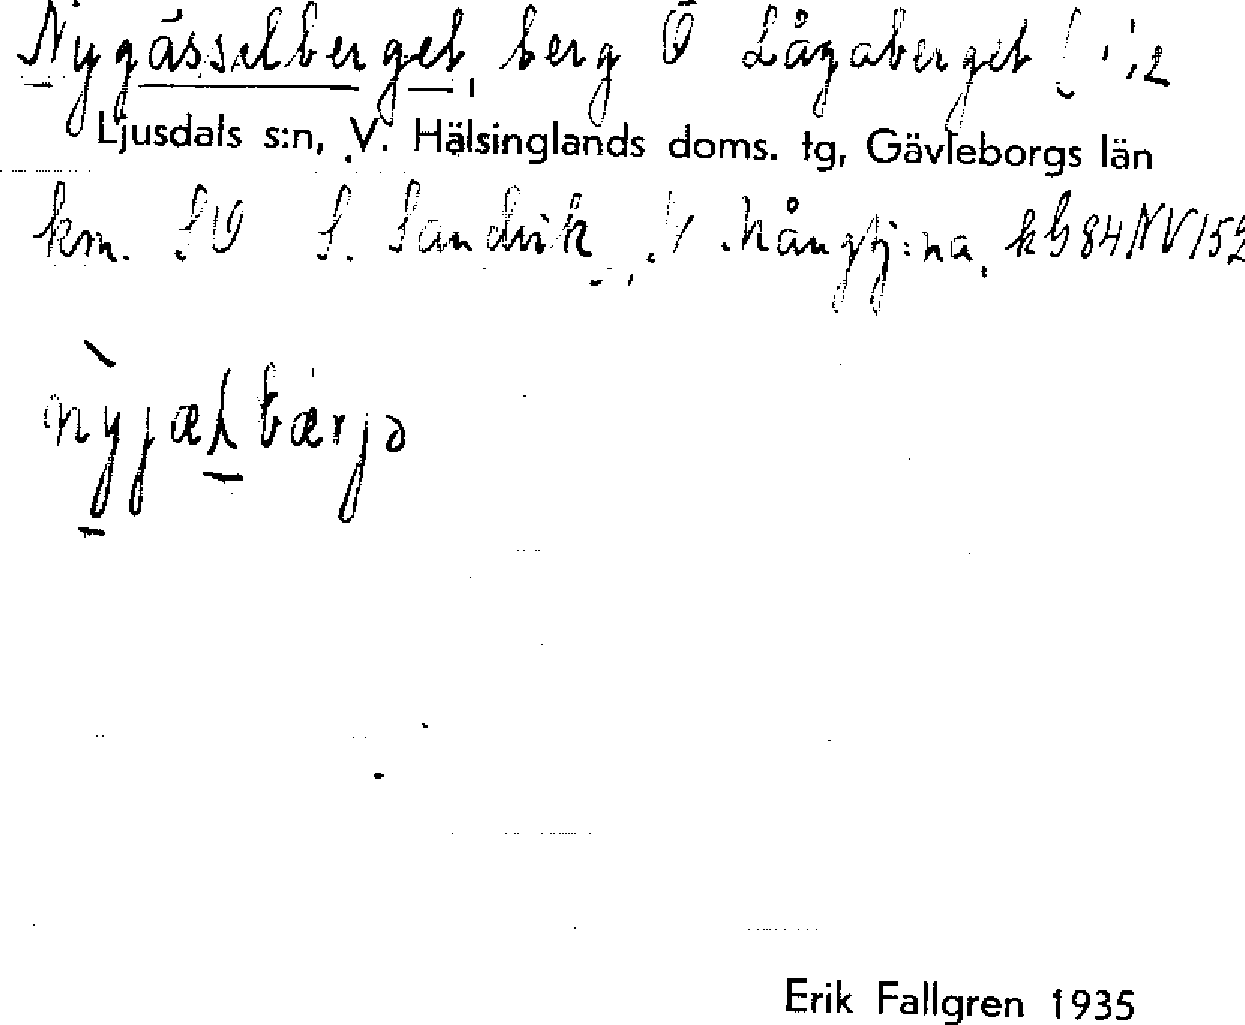 Nygässelberget, berg Ö Lågaberget
Ljusdals s:n, V. Hälsinglands doms. tg, Gävleborgs län
km. SO S. Sandvik, Mångtj:na, kG84NV152
nỳjæḻbærjə
Erik Fallgren 1935